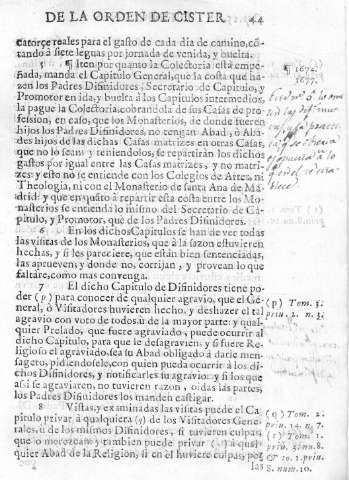 DE LA ORDEN DE CISTER. 44
catorçe reales para el gasto de cada dia de camino, cō-
tando à siete leguas por jornada de venida, y buelta.
5 ¶ Iten por quanto la Colectoria està empe-
ñada, manda el Capitulo General, que la costa que ha-
zen los Padres Disinidores, Secretario de Capitulo, y
Promotor en ida, y buelta à los Capitulos intermedios,
la pague la Colectoria, cobrandola de sus Casas de pro-
fession, en caso, que los Monasterios, de donde tienen
hijos los Padres Disinidores, no tengan Abad, ò Aba-
des hijos de las dichas Casas matrizes en otras Casas,
que no lo sean: y teniendolos, se repartiràn los dichos
gastos por igual entre las Casas matrizes, y no matri-
zes: y esto no se entiende con los Colegios de Artes, ni
Theologia, ni con el Monasterio de santa Ana de Ma-
drid: y que en quāto à repartir esta costa entre los Mo-
nasterios se entienda lo mismo del Secretario de Ca-
pitulo, y Promotor, que de los Padres Disinidores.
6 En los dichos Capitulos se han de ver todas
las visitas de los Monasterios, que à la sazon estuvieren
hechas, y si les pareciere, que estàn bien sentenciadas,
las aprueven, y donde no, corrijan, y provean lo que
faltare, como mas convenga.
7 El dicho Capitulo de Disinidores tiene po-
der (p) para conocer de qualquier agravio, que el Ge-
neral, ò Visitadores huvieren hecho, y deshazer el tal
agravio con voto de todos, ù de la mayor parte: y qual-
quier Prelado, que fuere agraviado, puede ocurrir al
dicho Capitulo, para que le desagravien: y si fuere Re-
ligioso el agraviado, sea su Abad obligado à darle men-
sagero, pidiendosele, con quien pueda ocurrir à los di-
chos Disinidores, y notificarles su agravio: y si los que
assi se agraviaren, no tuvieren razon, oidas las partes,
los Padres Disinidores los manden castigar.
8 Vistas, y examinadas las visitas puede el Ca-
pitulo privar à qualquiera (q) de los Visitadores Gene-
rales, ù de los mismos Disinidores, si tuvieren culpas,
que lo merezcan: y tambien puede privar (r) à qual-
quier Abad de la Religion, si en él huviere culpas, por
las
¶ 1677.
(p) Tom. 5.
prin. 1. n. 3.
(q) Tom. 2.
prin. 14. n. 7.
(r) Tom. 1.
prin. 8. nu. 8.
& 10. 1. prin.
8. num. 10.